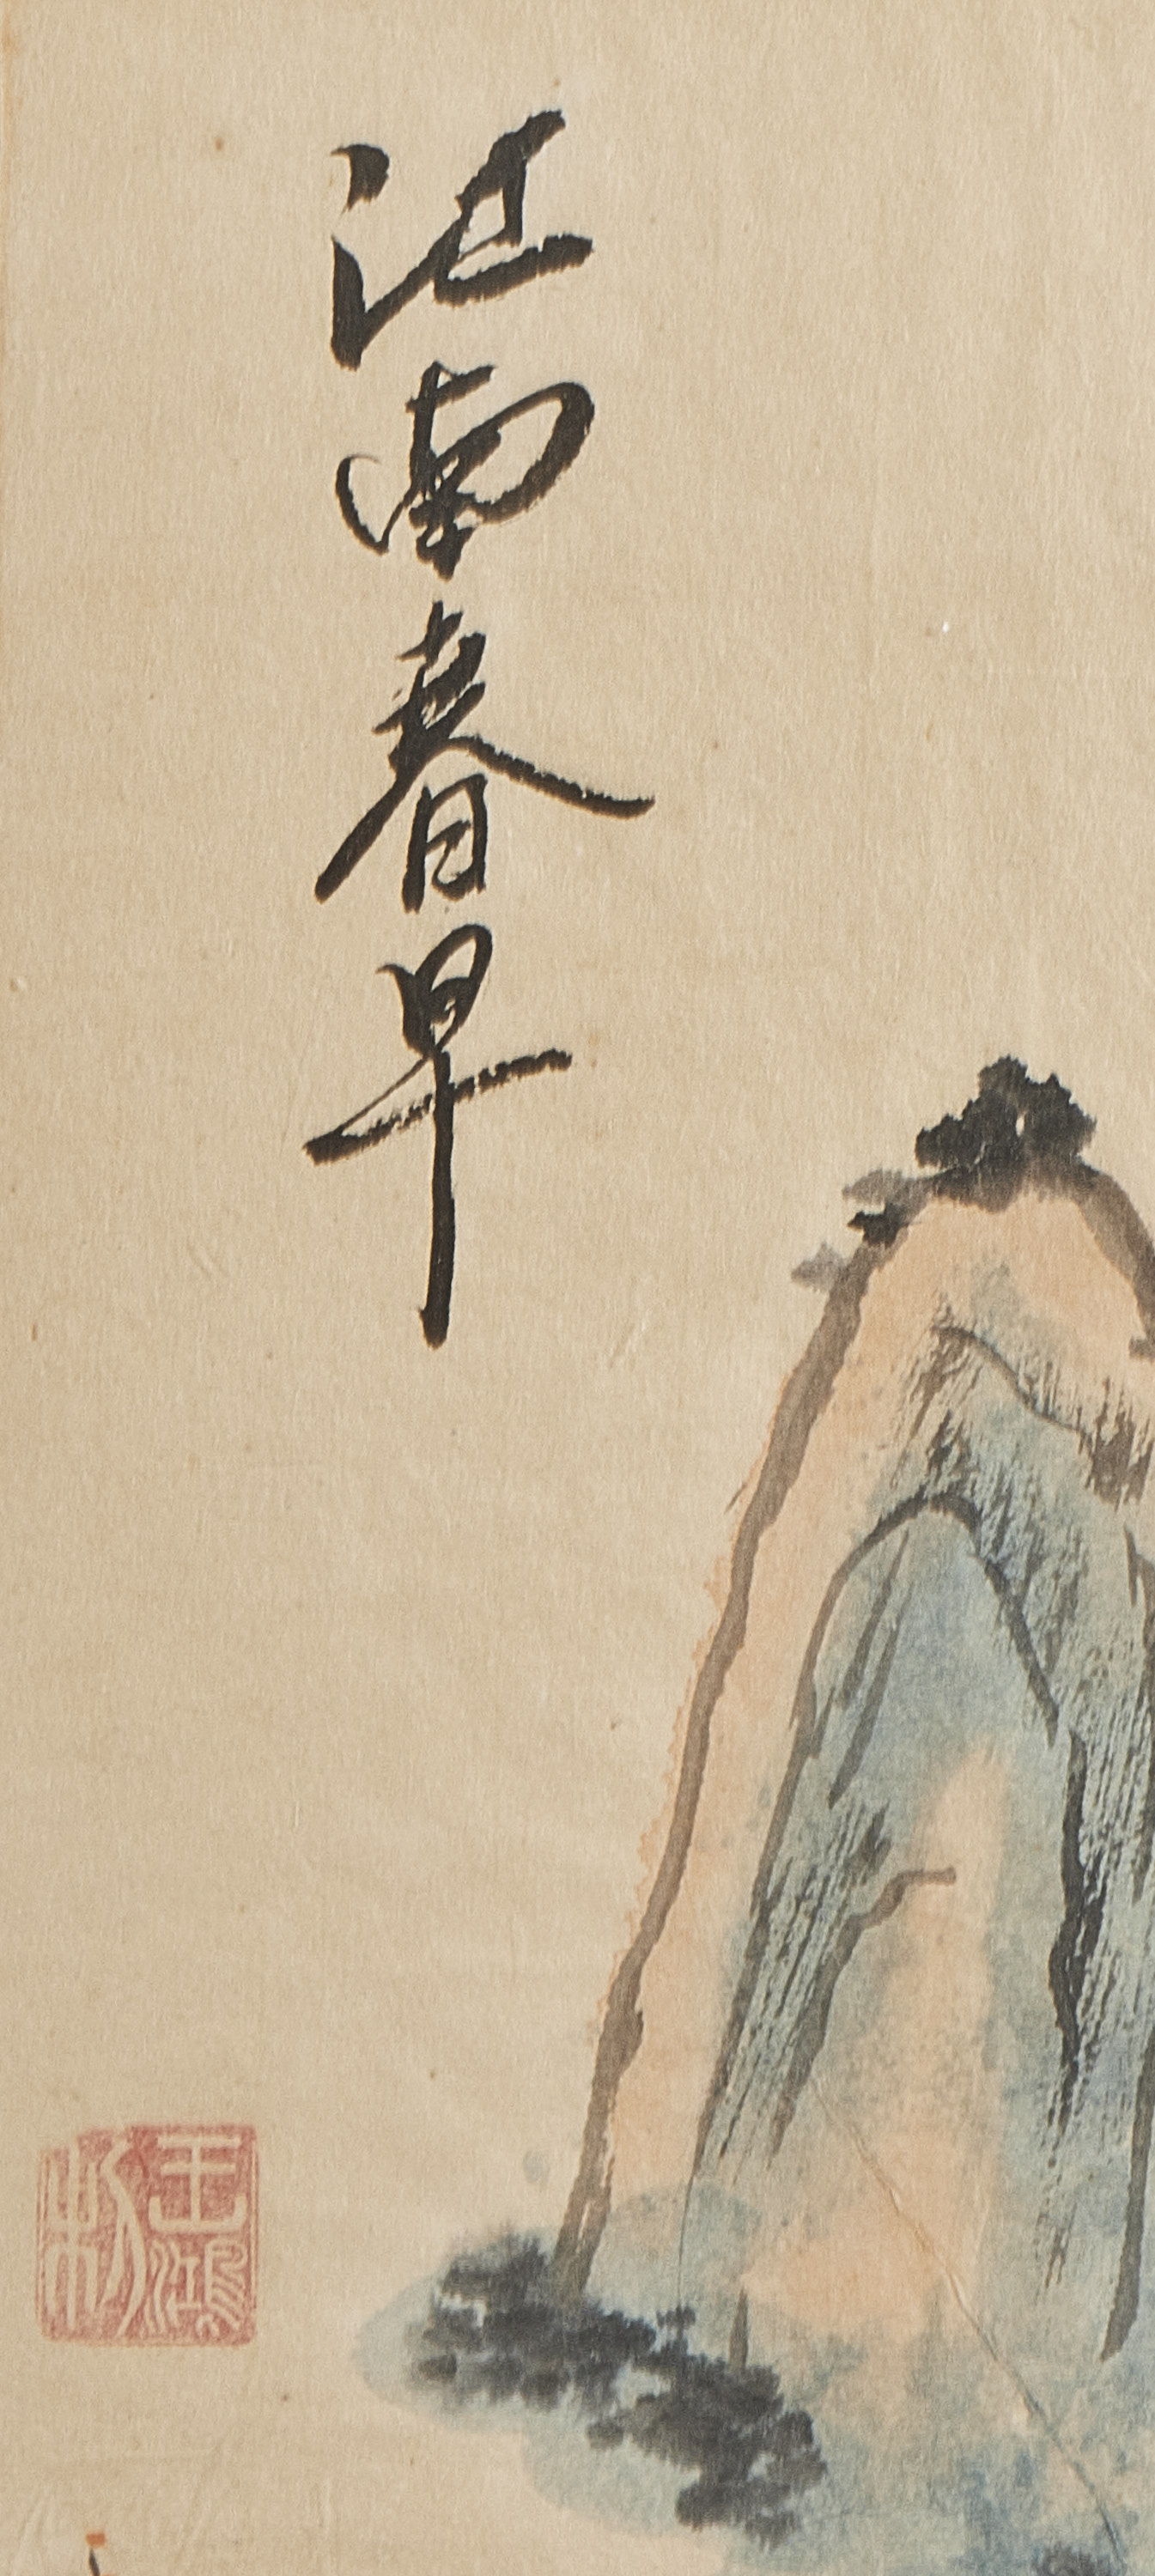 江南春早
王鸿